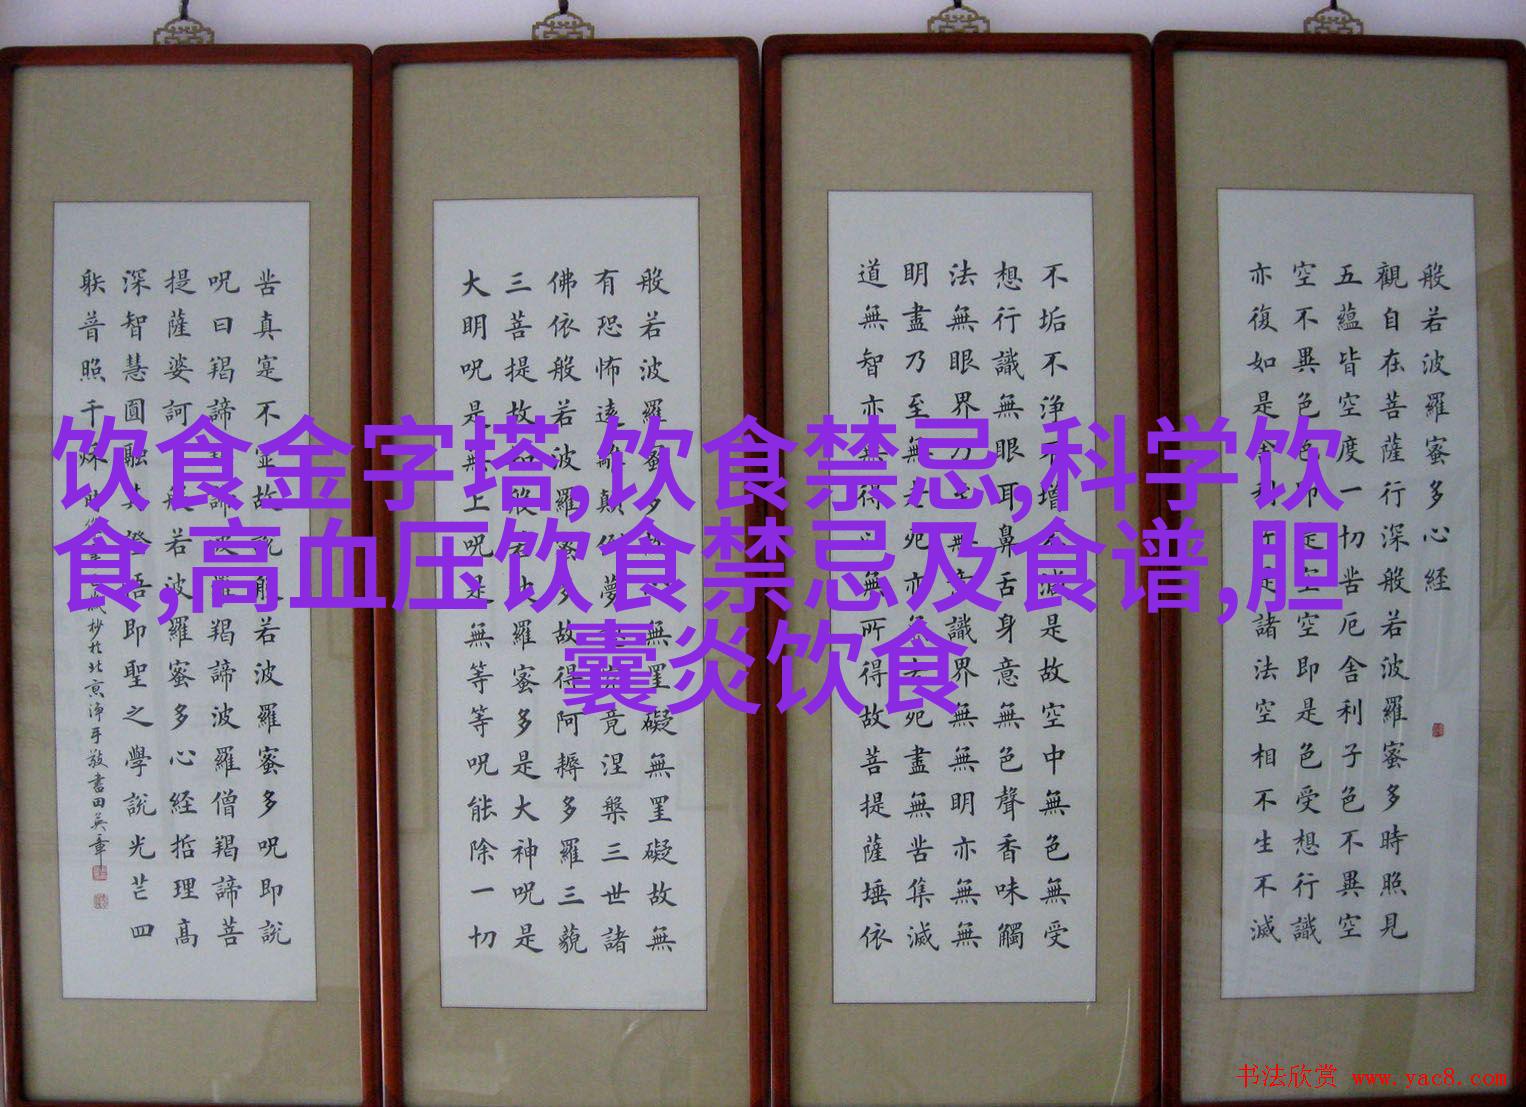 般若波羅蜜多心経
觀自在菩薩行深般若波羅蜜多時照見
五蘊皆空度一切苦厄舍利子色不異空
空不異色色即是空空即是色受想行識
亦復如是舍利子是諸法空相不生不滅
不垢不净不增不減是故空中無色無受
想行識無眼耳鼻舌身意無色聲香味觸
法無眼界乃至無意識界無無明亦無無
明盡乃至無老死亦無老死盡無苦集滅
道無智亦無得以無所得故菩提薩埵依
般若波羅蜜多故心無罣礙無罣礙故無
有恐怖遠離顛倒夢想究竟涅槃三世諸
佛依般若波羅蜜多故得阿耨多羅三藐
三菩提故知般若波羅蜜多是大神呪是
大明呪是無上呪是無等等呪能除一切
苦真寔不虛故說般若波羅蜜多呪即說
呪曰羯諦羯諦波羅羯諦波羅僧羯諦菩
提薩婆訶般若波羅蜜多心経哲理高
深智慧圓融其證悟即聖之學說光芒四
躲普照千秋 北京淨手敬書田英章
饮食金字塔,饮食禁忌,科学饮
食,高血压饮食禁忌及食谱,胆
囊炎饮食
书法欣赏 www.yac8.com